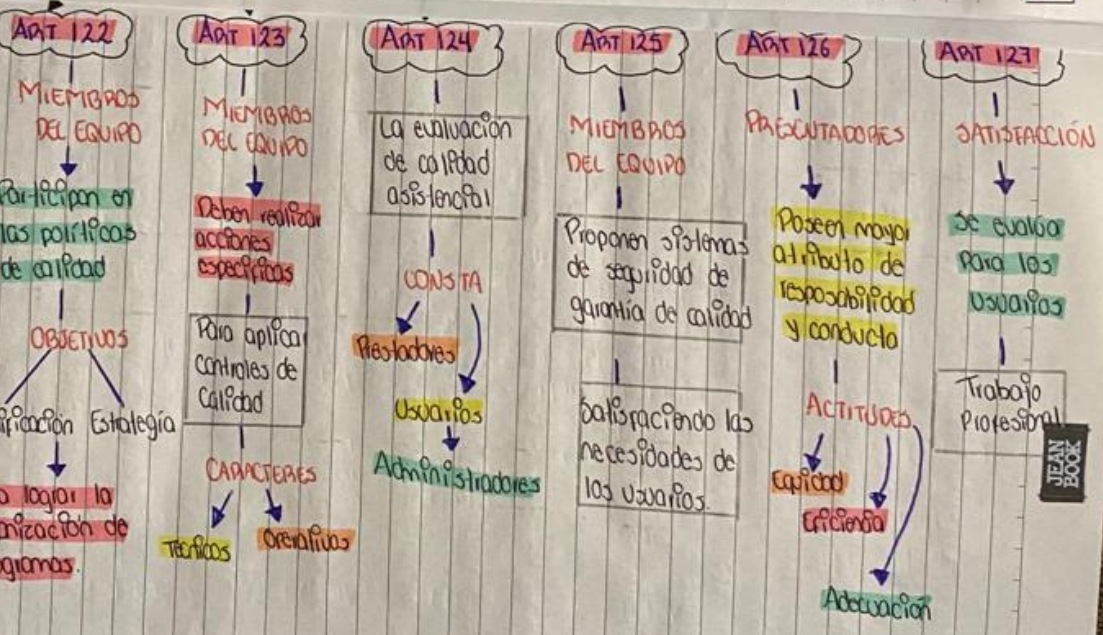 ART 122
MIEMBROS
DEL EQUIPO
Participan en
las políticas
de calidad
OBJETIVOS
Estrategia
lograr la
de
ART 123
MIEMBROS
DEL EQUIPO
Deben realizar
acciones
específicas
Para aplicar
controles de
Calidad
CARACTERES
Técnicos
Operativos
ART 124
La evaluación
de calidad
asistencial
CONSTA
Prestadores
Usuarios
Administradores
ART 125
MIEMBROS
DEL EQUIPO
Proponen sistemas
de seguridad de
garantía de calidad
Satisfaciendo las
necesidades de
los usuarios.
ART 126
Poseen mayor
atributo de
resposabilidad
y conducta
ACTITUDES
Equidad
Eficiencia
Adecuación
ART 127
SATISFACCIÓN
Se evalúa
para los
Usuarios
Trabajo
Profesional
JEAN
BOOK